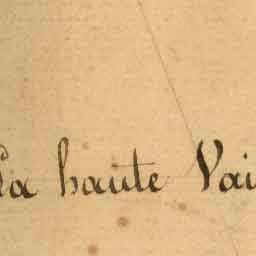 La haute Vai